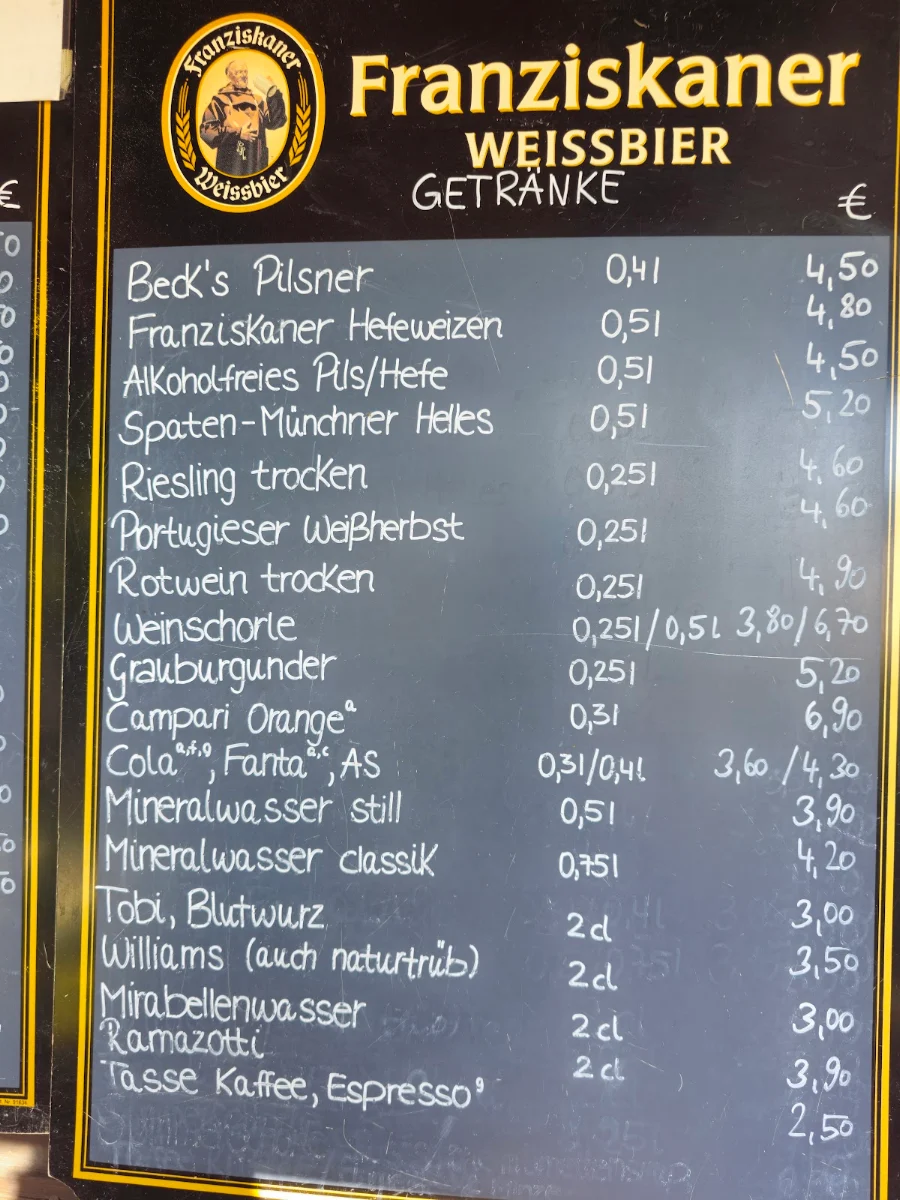 Franziskaner
Weissbier
Franziskaner
WEISSBIER
GETRÄNKE €
€
Beck's Pilsner 0,4l 4,50
Franziskaner Hefeweizen 0,5l 4,80
Alkoholfreies Pils/Hefe 0,5l 4,50
Spaten-Münchner Helles 0,5l 5,20
Riesling trocken 0,25l 4,60
Portugieser Weißherbst 0,25l 4,60
Rotwein trocken 0,25l 4,90
Weinschorle 0,25l/0,5l 3,80/6,70
Grauburgunder 0,25l 5,20
Campari Orange ª 0,3l 6,90
Cola a,f,g, Fanta a,c, AS 0,3l/0,4l 3,60/4,30
Mineralwasser still 0,5l 3,90
Mineralwasser classik 0,75l 4,20
Tobi, Blutwurz 2cl 3,00
Williams (auch naturtrüb) 2cl 3,50
Mirabellenwasser 2cl 3,00
Ramazotti 2cl 3,90
Tasse Kaffee, Espresso 9 2,50